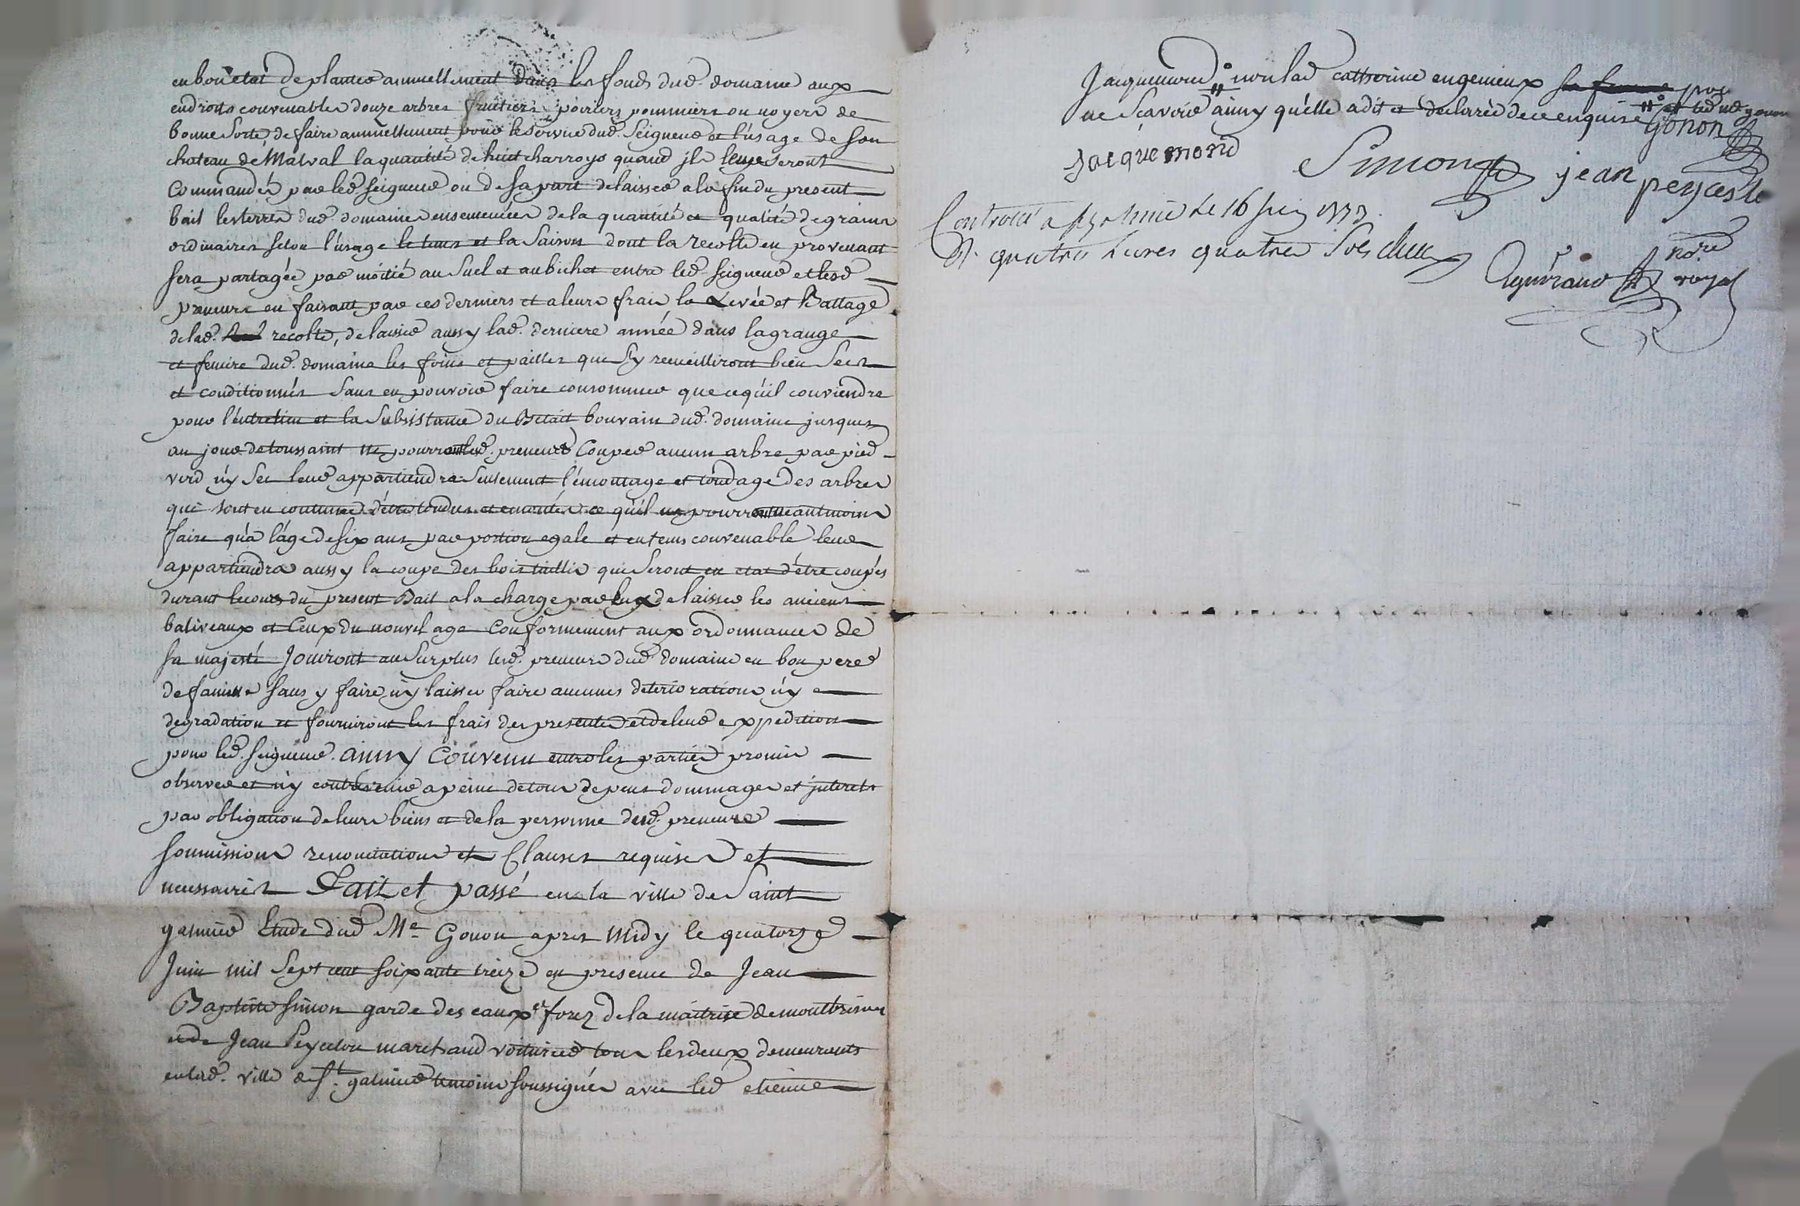 en bon etat de planter annuellement dans les fonds dud. domaine aux
endroits convenables douze arbres fruitiers poiriers pommiers ou noyers de
bonne sorte, de faire annuellement pour le service dud. seigneur et l'usage de son
chateau de Malval la quantité de huit charroys quand jls leurs seront
Commandés par led. seigneur ou de sa part delaisser a la fin du present
bail les terres dud. domaine ensemencées de la quantité et qualité de grains
ordinaires selon l'usage le tems et la saison dont la recolte en provenant
sera partagée par moitié au suel et au bichet entre led. seigneur et lesd.
preneurs en faisant par ces derniers et a leurs frais la Levée et Battage
de lad. recolte, de laisser aussy lad. derniere année dans la grange
et feniere dud. domaine les foins et pailles que s'y recueilliront bien secs
et conditionnés sans en pouvoir faire consommer que ce qu'il conviendra
pour l'entretien et la subsistance du Betail bouvain dud. domaine jusques
au jour de toussaint ne pourront lesd. preneurs Couper aucun arbre par pied
verd n'y sec leur appartiendra seulement l'émontage et tondage des arbres
qui sont en coutume d'être tondus et emontés ce qu'il ne pourront neantmoins
faire qu'a l'âge de six ans par portion egale et en tems convenable leur
appartiendra aussy la coupe des bois taillis qui seront en etat d'être coupés
durant le cours du present Bail a la charge par eux de laisser les anciens
baliveaux et Ceux du nouvel age Conformement aux ordonnances de
sa majesté Joüiront au surplus lesd. preneurs dud. domaine en bon pere
de famille sans y faire n'y laisser faire aucunes deteriorations n'y
degradation et fourniront les frais des presentes et de leur expedition
pour led. seigneur. ainsy Convenu entre les parties promis
observer et n'y contrevenir a peine de tous depens dommages et jnterets
par obligation de leurs biens et de la personne desd. preneurs
soumissions renonciations et Clauses requises et
necessaires Fait et passé en la ville de Saint
galmier Etude dud. Me. Gonon apres Midy le quatorze
Juin mil sept cent soixante treize en presence de Jean
Baptiste Simon garde des eaux et forez de la maitrise de montbrison
et de Jean Peycelon marchand voiturier tous les deux demeurants
en lad. ville de St. galmier temoins soussignés avec led. etienne
Jacquemond non lad. Catherine engenieux sa femme pour
ne sçavoir ainsy qu'elle a dit et declarée de ce enquise
Gonon
Jacquemond
Simon
jean
Controllé a le 16 juin 1773
R. quatre Livres quatre sols
nore.
royal